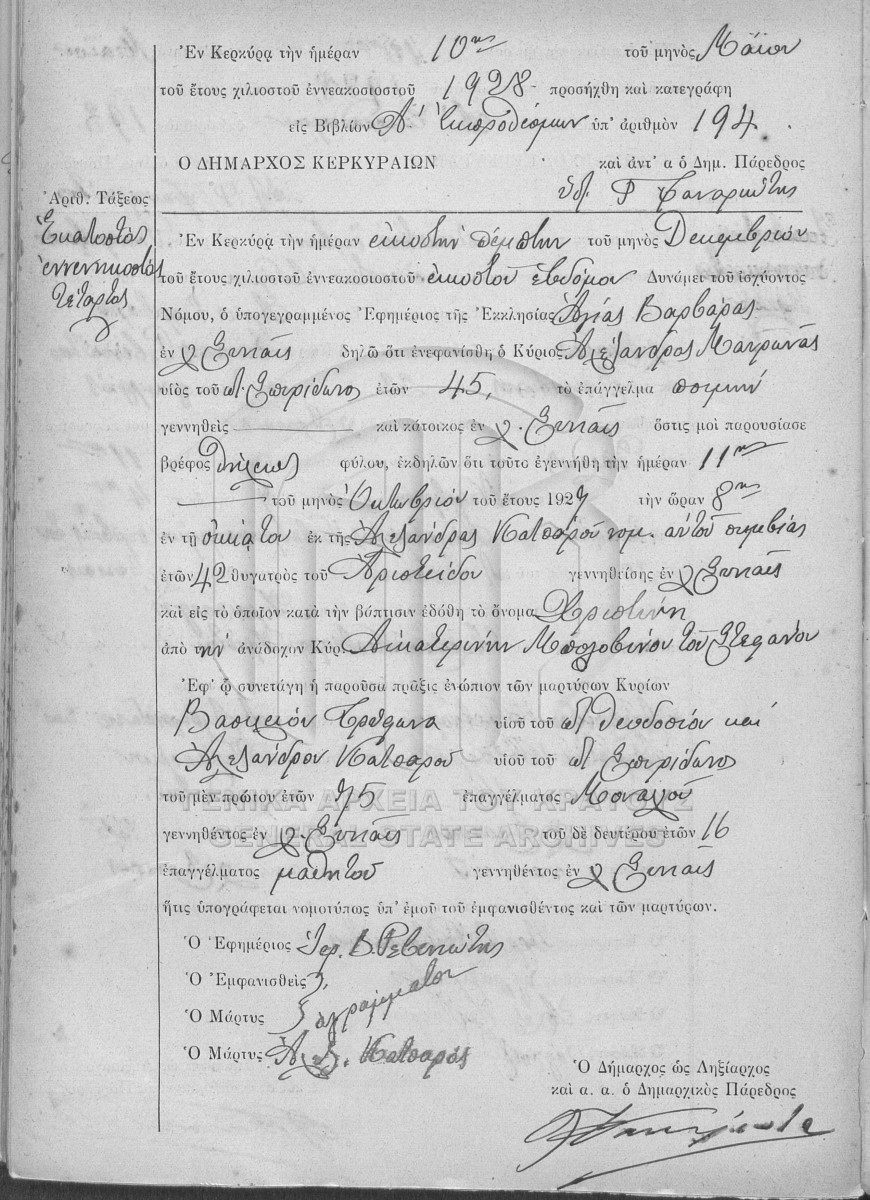 Ἐν Κερκύρᾳ τὴν ἡμέραν 10ην τοῦ μηνὸς Μάϊου
τοῦ ἔτους χιλιοστοῦ ἐννεακοσιοστοῦ 1928 προσήχθη καὶ κατεγράφη
εἰς Βιβλίον Α' Ἐκπροθέσμων ὑπ' ἀριθμὸν 194.
Ο ΔΗΜΑΡΧΟΣ ΚΕΡΚΥΡΑΙΩΝ καὶ ἀντ' α ὁ Δημ. Πάρεδρος
Ἀριθ. Τάξεως
Ἑκατοστὸς
ἐννενηκοστὸς
τέταρτος
Ἐν Κερκύρᾳ τὴν ἡμέραν εἰκοστὴν πέμπτην τοῦ μηνὸς Δεκεμβρίου
τοῦ ἔτους χιλιοστοῦ ἐννεακοσιοστοῦ εἰκοστοῦ ἑβδόμου Δυνάμει τοῦ ἰσχύοντος
Νόμου, ὁ ὑπογεγραμμένος Ἐφημέριος τῆς Ἐκκλησίας Ἁγίας Βαρβάρας
ἐν χ. δηλῶ ὅτι ἐνεφανίσθη ὁ Κύριος Ἀλέξανδρος
υἱὸς τοῦ Σπυρίδωνος ἐτῶν 45, τὸ ἐπάγγελμα ποιμὴν
γεννηθεὶς καὶ κάτοικος ἐν χ. ὅστις μοὶ παρουσίασε
βρέφος θήλεος φύλου, ἐκδηλῶν ὅτι τοῦτο ἐγεννήθη τὴν ἡμέραν 11ην
τοῦ μηνὸς Ὀκτωβρίου τοῦ ἔτους 1927 τὴν ὥραν 8ην
ἐν τῇ οἰκίᾳ του ἐκ τῆς Ἀλεξάνδρας Κατσαροῦ νομ. αὐτοῦ συμβίας
ἐτῶν 42 θυγατρὸς τοῦ Ἀριστείδου γεννηθείσης ἐν χ
καὶ εἰς τὸ ὁποῖον κατὰ τὴν βάπτισιν ἐδόθη τὸ ὄνομα Χριστίνη
ἀπὸ τὴν ἀνάδοχον Κύρ. Αἰκατερίνην Μπολοβίνου τοῦ Στεφάνου
Ἐφ' ᾧ συνετάγη ἡ παροῦσα πρᾶξις ἐνώπιον τῶν μαρτύρων Κυρίων
Βασίλειον υἱοῦ τοῦ Θεοδοσίου καὶ
Ἀλέξανδρον Κατσαροῦ υἱοῦ τοῦ Σπυρίδωνος
τοῦ μὲν πρώτου ἐτῶν 75 ἐπαγγέλματος Μοναχοῦ
γεννηθέντος ἐν χ. τοῦ δὲ δευτέρου ἐτῶν 16
ἐπαγγέλματος μαθητοῦ γεννηθέντος ἐν χ
ἥτις ὑπογράφεται νομοτύπως ὑπ' ἐμοῦ τοῦ ἐμφανισθέντος καὶ τῶν μαρτύρων.
Ὁ Ἐφημέριος Ἱερ. Β.
Ὁ Ἐμφανισθεὶς
Ὁ Μάρτυς ἀγράμματοι
Ὁ Μάρτυς Ἀλέξ. Κατσαρός
Ὁ Δήμαρχος ὡς Ληξίαρχος
καὶ α. α. ὁ Δημαρχικὸς Πάρεδρος
ΓΕΝΙΚΑ ΑΡΧΕΙΑ ΤΟΥ ΚΡΑΤΟΥΣ
GENERAL STATE ARCHIVES